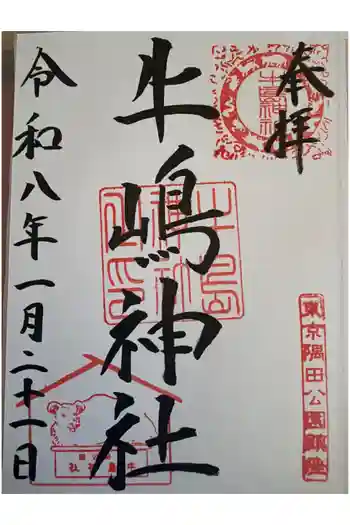 奉拝
牛嶋神社
令和八年一月二十一日
東京隅田公園鎮座